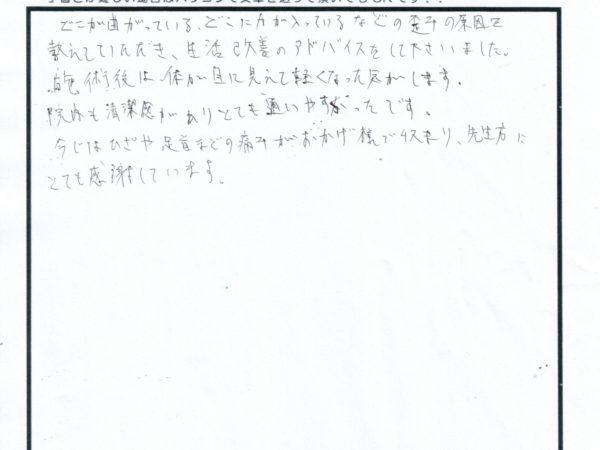 どこが曲がっている、どこに力が入っているなどの歪みの原因を
教えていただき、生活改善のアドバイスをして下さいました。
施術後は、体が目に見えて軽くなった気がします。
院内も清潔感がありとても通いやすかったです。
今ではひざや足首などの痛みがおかげ様で収まり、先生方に
とても感謝しています。